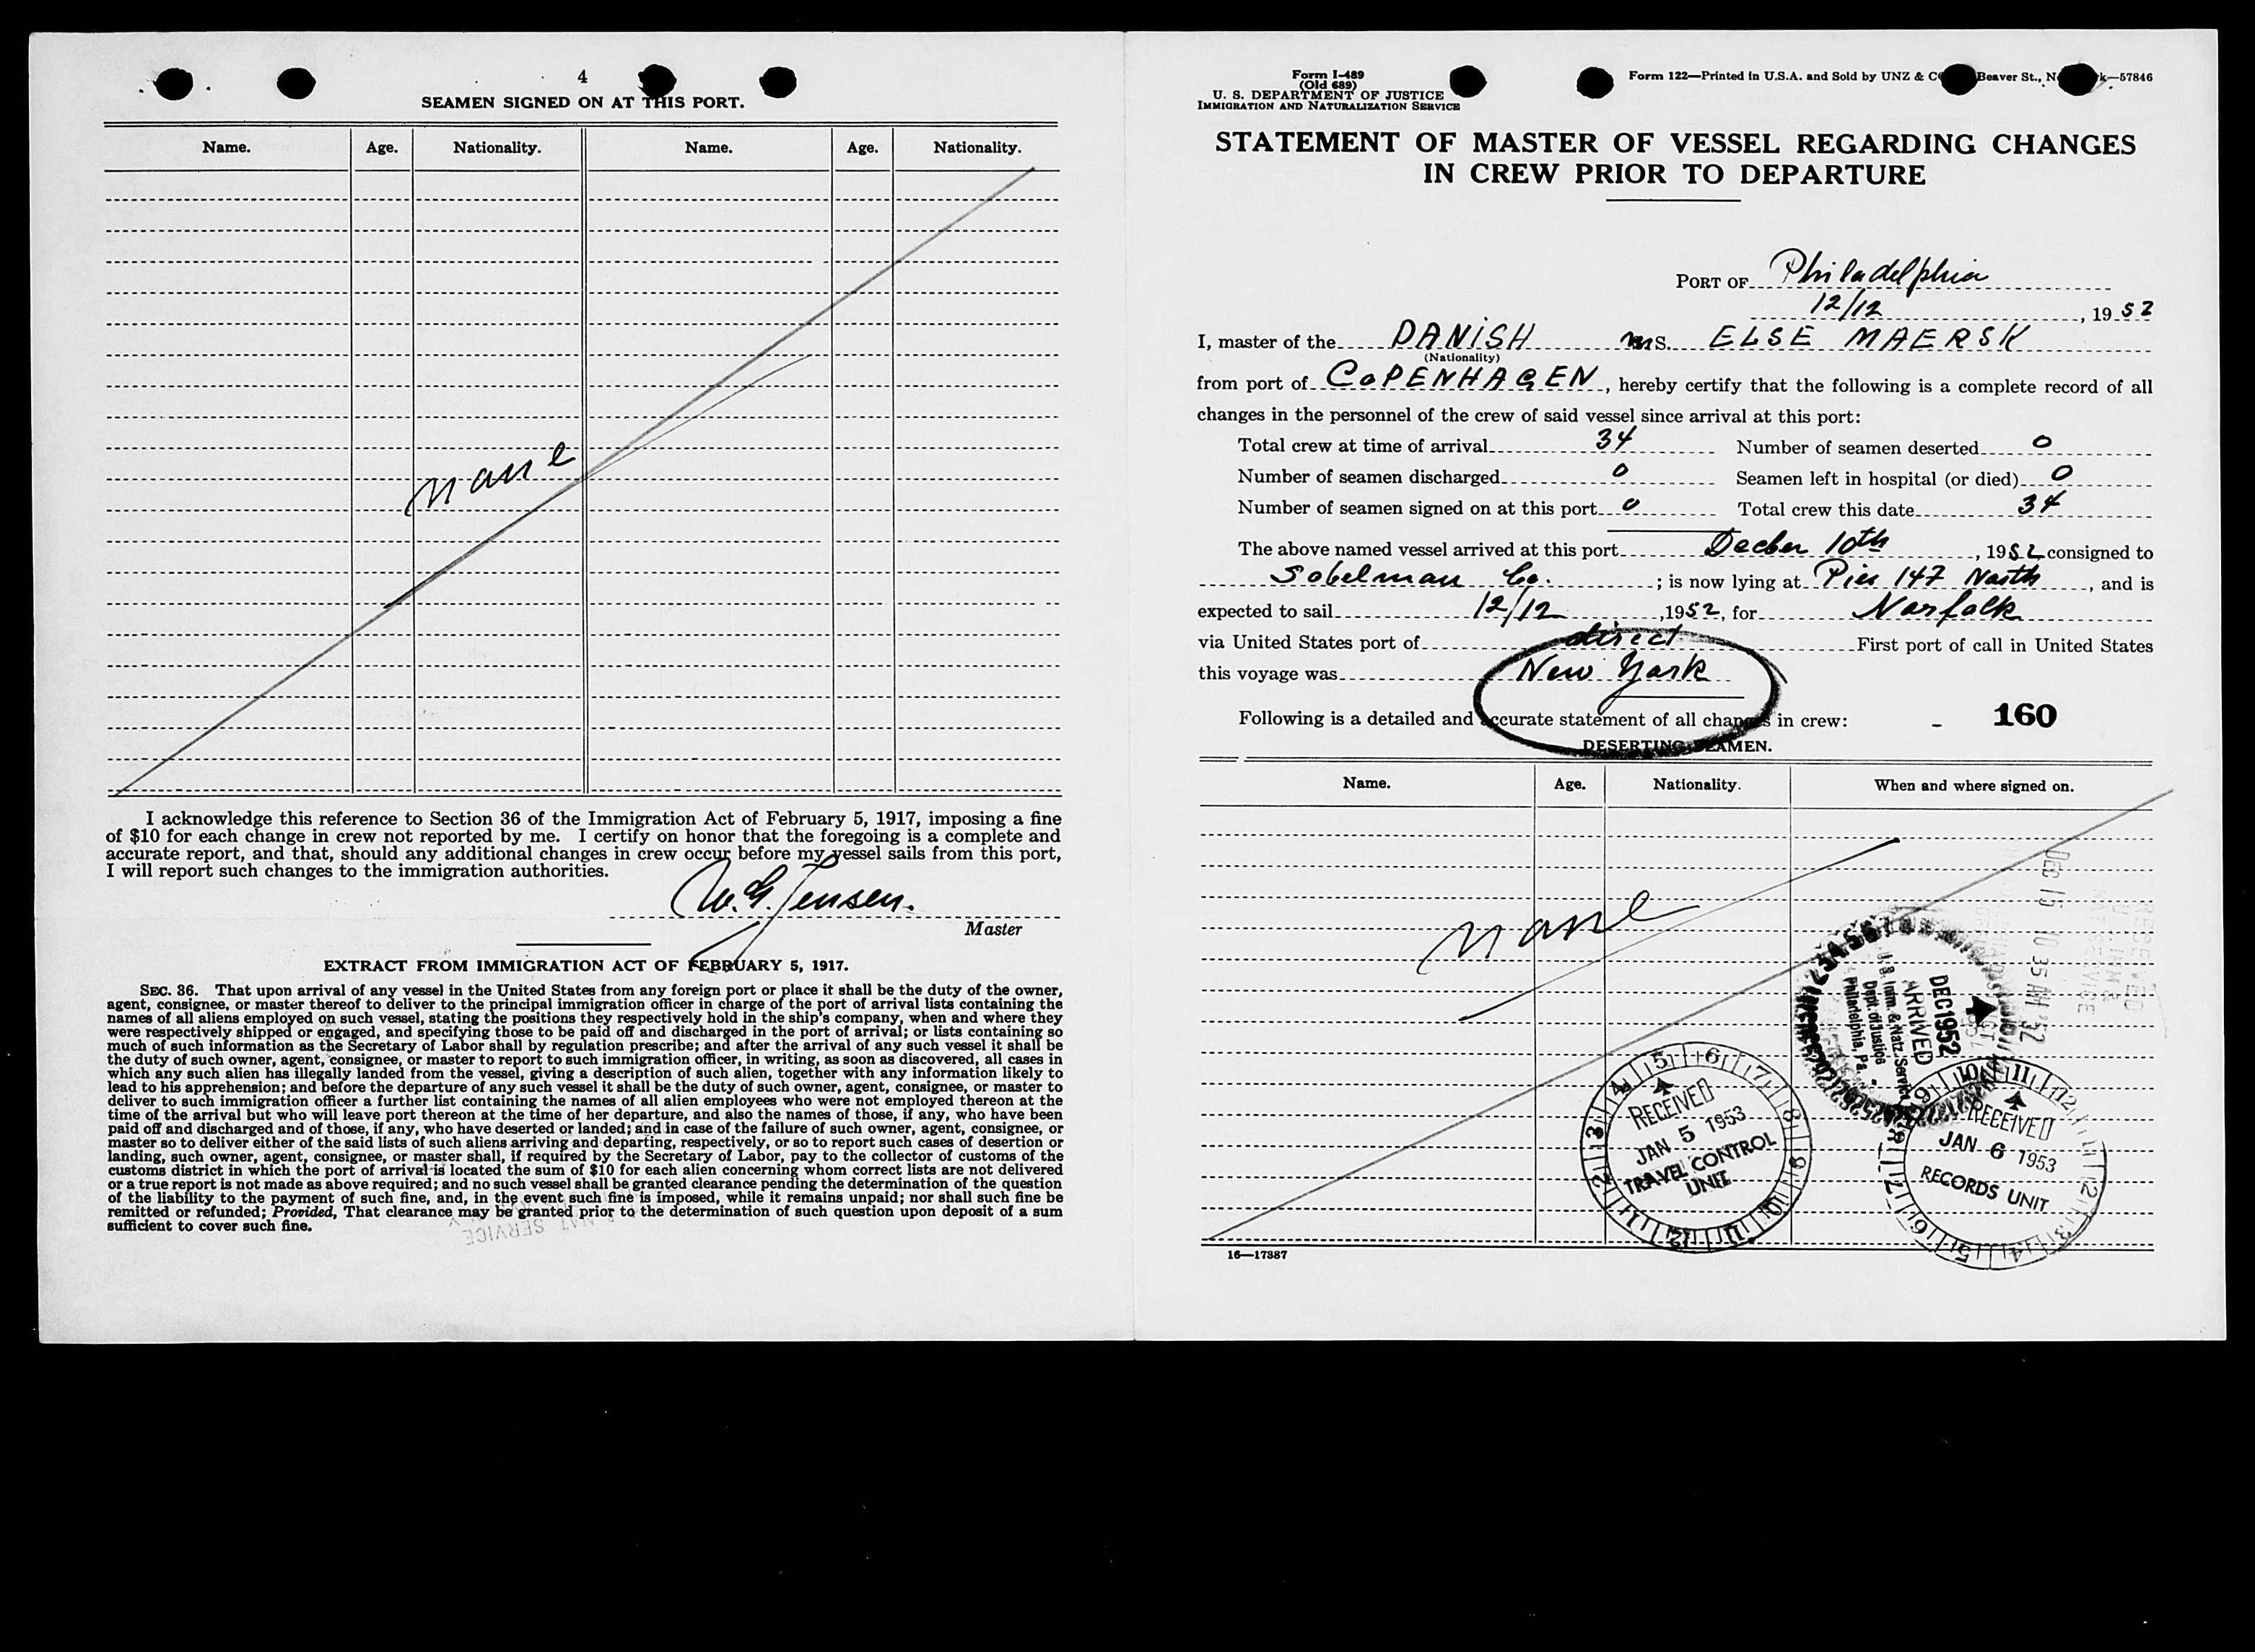 4
SEAMEN SIGNED ON AT THIS PORT.
Name. Age. Nationality. Name. Age. Nationality.
None
I acknowledge this reference to Section 36 of the Immigration Act of February 5, 1917, imposing a fine
of $10 for each change in crew not reported by me. I certify on honor that the foregoing is a complete and
accurate report, and that, should any additional changes in crew occur before my vessel sails from this port,
I will report such changes to the immigration authorities.
Jensen.
Master
EXTRACT FROM IMMIGRATION ACT OF FEBRUARY 5, 1917.
SEC. 36. That upon arrival of any vessel in the United States from any foreign port or place it shall be the duty of the owner,
agent, consignee, or master thereof to deliver to the principal immigration officer in charge of the port of arrival lists containing the
names of all aliens employed on such vessel, stating the positions they respectively hold in the ship's company, when and where they
were respectively shipped or engaged, and specifying those to be paid off and discharged in the port of arrival; or lists containing so
much of such information as the Secretary of Labor shall by regulation prescribe; and after the arrival of any such vessel it shall be
the duty of such owner, agent, consignee, or master to report to such immigration officer, in writing, as soon as discovered, all cases in
which any such alien has illegally landed from the vessel, giving a description of such alien, together with any information likely to
lead to his apprehension; and before the departure of any such vessel it shall be the duty of such owner, agent, consignee, or master to
deliver to such immigration officer a further list containing the names of all alien employees who were not employed thereon at the
time of the arrival but who will leave port thereon at the time of her departure, and also the names of those, if any, who have been
paid off and discharged and of those, if any, who have deserted or landed; and in case of the failure of such owner, agent, consignee, or
master so to deliver either of the said lists of such aliens arriving and departing, respectively, or so to report such cases of desertion or
landing, such owner, agent, consignee, or master shall, if required by the Secretary of Labor, pay to the collector of customs of the
customs district in which the port of arrival is located the sum of $10 for each alien concerning whom correct lists are not delivered
or a true report is not made as above required; and no such vessel shall be granted clearance pending the determination of the question
of the liability to the payment of such fine, and, in the event such fine is imposed, while it remains unpaid; nor shall such fine be
remitted or refunded; Provided, That clearance may be granted prior to the determination of such question upon deposit of a sum
sufficient to cover such fine.
Form I-489
(Old 689)
U. S. DEPARTMENT OF JUSTICE
IMMIGRATION AND NATURALIZATION SERVICE
Form 122—Printed in U.S.A. and Sold by UNZ & C Beaver St., N k—57846
STATEMENT OF MASTER OF VESSEL REGARDING CHANGES
IN CREW PRIOR TO DEPARTURE
PORT OF Philadelphia
12/12, 1952
I, master of the DANISH ms. ELSE MAERSK
(Nationality)
from port of COPENHAGEN, hereby certify that the following is a complete record of all
changes in the personnel of the crew of said vessel since arrival at this port:
Total crew at time of arrival 34 Number of seamen deserted 0
Number of seamen discharged 0 Seamen left in hospital (or died) 0
Number of seamen signed on at this port 0 Total crew this date 34
The above named vessel arrived at this port Decber 10th, 1952 consigned to
Sobelman Co.; is now lying at Pier 147 North, and is
expected to sail 12/12, 1952, for Norfolk
via United States port of direct First port of call in United States
this voyage was New York
Following is a detailed and accurate statement of all changes in crew: - 160
DESERTING SEAMEN.
Name. Age. Nationality. When and where signed on.
None
DEC 15 10 35 AM '52
ARRIVED
DEC 1952
U. S. Imm. & Natz. Service
Dept. of Justice
Philadelphia, Pa.
RECEIVED
JAN 5 1953
TRAVEL CONTROL
UNIT
RECEIVED
JAN 6 1953
RECORDS UNIT
16—17387